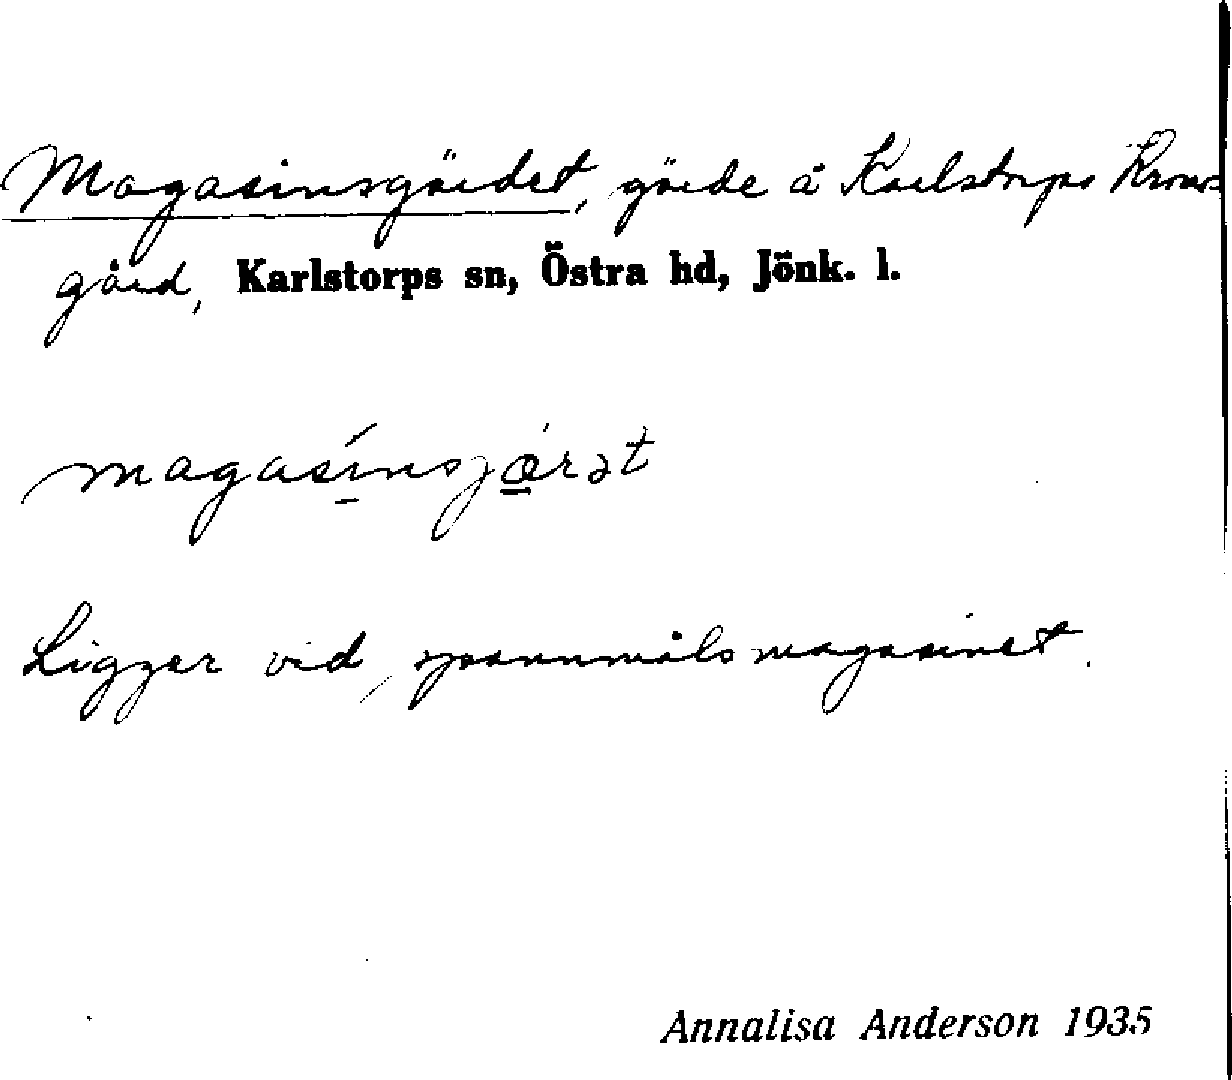 Magasinsgärdet, gärde å Karlstorps Krono
gård, Karlstorps sn, Östra hd, Jönk. l.
magasínsjærət
Ligger vid spannmålsmagasinet.
Annalisa Anderson 1935